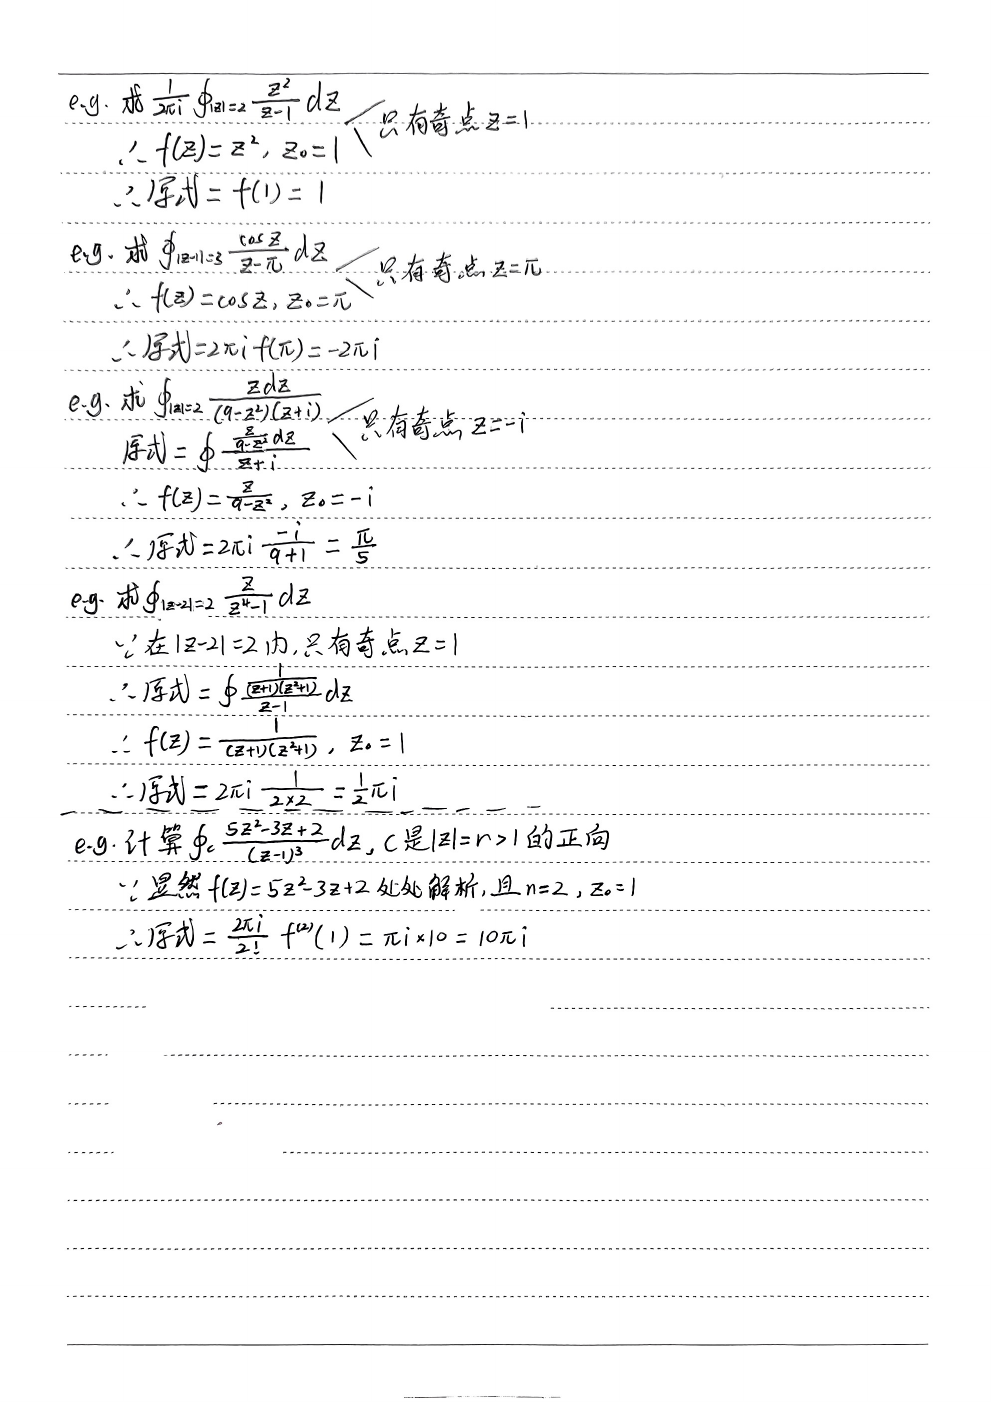 e.g. 求 \frac{1}{2πi} ∮_{|z|=2} \frac{z^2}{z-1} dz
只有奇点 z=1
∴ f(z)=z^2, z_0=1
∴原式=f(1)=1
e.g. 求 ∮_{|z-1|=3} \frac{cosz}{z-π} dz
只有奇点 z=π
∴ f(z)=cosz, z_0=π
∴原式=2πi f(π)=-2πi
e.g. 求 ∮_{|z|=2} \frac{zdz}{(9-z^2)(z+i)}
只有奇点 z=-i
原式=∮ \frac{\frac{z}{9-z^2}dz}{z+i}
∴ f(z)=\frac{z}{9-z^2}, z_0=-i
∴原式=2πi \frac{-i}{9+1}=\frac{π}{5}
e.g. 求∮_{|z-2|=2} \frac{z}{z^4-1} dz
∵在|z-2|=2内,只有奇点z=1
∴原式=∮ \frac{\frac{1}{(z+1)(z^2+1)}}{z-1} dz
∴ f(z)=\frac{1}{(z+1)(z^2+1)}, z_0=1
∴原式=2πi \frac{1}{2×2}=\frac{1}{2}πi
e.g. 计算∮_c \frac{5z^2-3z+2}{(z-1)^3} dz, C是|z|=r>1的正向
∵显然 f(z)=5z^2-3z+2处处解析,且n=2, z_0=1
∴原式=\frac{2πi}{2!} f^{(2)}(1)=πi×10=10πi